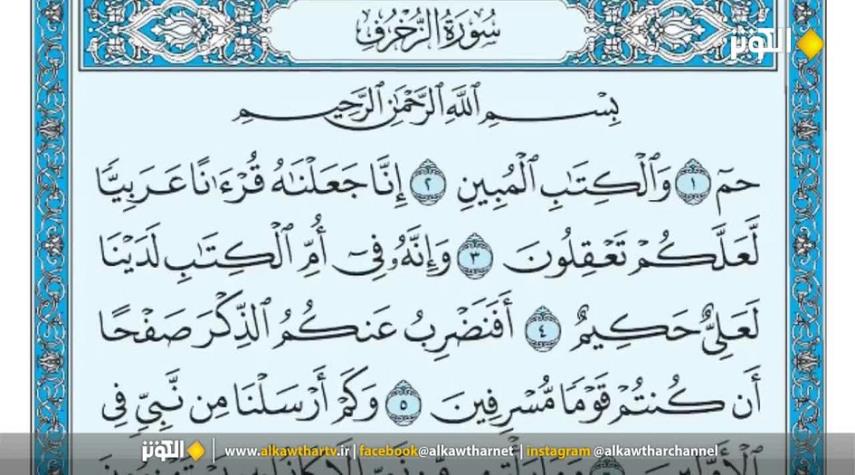 سُورَةُ الزُّخْرُفِ
الكوثر
بِسْمِ ٱللَّهِ ٱلرَّحْمَٰنِ ٱلرَّحِيمِ
حمٓ ١ وَٱلْكِتَٰبِ ٱلْمُبِينِ ٢ إِنَّا جَعَلْنَٰهُ قُرْءَٰنًا عَرَبِيًّا
لَّعَلَّكُمْ تَعْقِلُونَ ٣ وَإِنَّهُۥ فِىٓ أُمِّ ٱلْكِتَٰبِ لَدَيْنَا
لَعَلِىٌّ حَكِيمٌ ٤ أَفَنَضْرِبُ عَنكُمُ ٱلذِّكْرَ صَفْحًا
أَن كُنتُمْ قَوْمًا مُّسْرِفِينَ ٥ وَكَمْ أَرْسَلْنَا مِن نَّبِىٍّ فِى
الكوثر www.alkawthartv.ir | facebook@alkawtharnet | instagram @alkawtharchannel